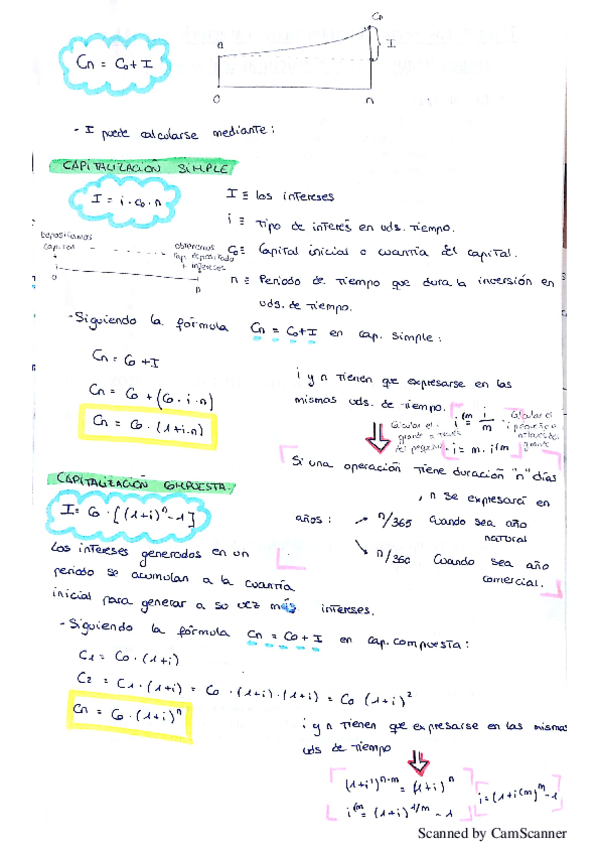 Cn = Co + I
Co
I
a
0
n
- I puede calcularse mediante:
CAPITALIZACIÓN SIMPLE
I = i · Co · n
I ≡ los intereses
i ≡ Tipo de interés en uds. Tiempo.
Depositamos capital
obtenemos cap. depositado + intereses
0
n
Co ≡ Capital inicial o cuantía del capital.
n ≡ Periodo de Tiempo que dura la inversión en
uds. de Tiempo.
- Siguiendo la fórmula Cn = Co + I en cap. simple:
Cn = Co + I
Cn = Co + (Co · i · n)
Cn = Co · (1 + i · n)
i y n Tienen que expresarse en las
mismas uds. de Tiempo.
Calcular el grande a través del pequeño
i(m = i/m
Calcular el pequeño a través del grande
i = m · i(m
Si una operación Tiene duración "n" días
, n se expresará en
años: → n/365 Cuando sea año
natural
↘ n/360 Cuando sea año
comercial.
CAPITALIZACIÓN COMPUESTA.
I = Co · [(1+i)^n - 1]
Los intereses generados en un
periodo se acumulan a la cuantía
inicial para generar a su vez más intereses.
- Siguiendo la fórmula Cn = Co + I en cap. compuesta:
C1 = Co · (1+i)
C2 = C1 · (1+i) = Co · (1+i) · (1+i) = Co (1+i)²
Cn = Co · (1+i)^n
i y n Tienen que expresarse en las mismas
uds de Tiempo
(1+i')^n·m = (1+i)^n
i(m = (1+i)^1/m - 1
i = (1+i(m)^m - 1
Scanned by CamScanner